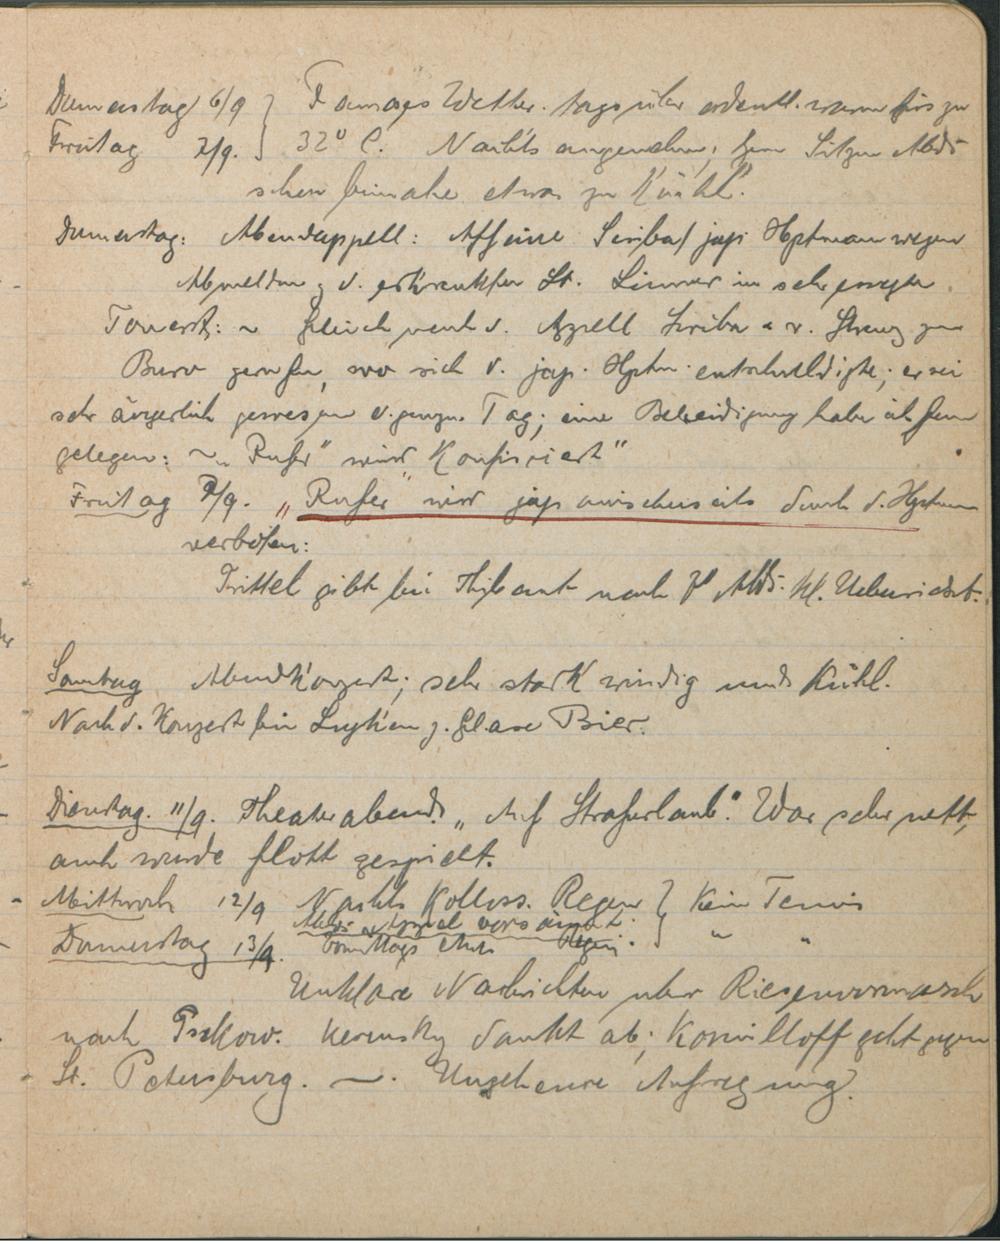 Donnerstag 6/9 } Famoses Wetter. tagsüber ordentl. warm bis zu
Freitag 7/9. } 32° C. Nachts angenehm; zum Sitzen Abds
schon beinahe etwas zu "Kühl".
Donnerstag: Abendappell: Affaire Scriba/ jap. Hptmann wegen
Abmeldung d. erkrankten Lt. in sehr
Ton erst: ~ Gleich nach d. Appell Scriba u. v. Strenz zum
Büro gerufen, wo sich d. jap. Hptm. entschuldigte; er sei
sehr ärgerlich gewesen d. ganzen Tag; eine Beleidigung habe ihm fern
gelegen: ~ "Rufer" wird Konfisciert"
Freitag 7/9. "Rufer" wird japanischerseits durch d. Hptmann
verboten:
Trittel gibt bei nach Abds. Kl. Uebersicht.
Sonntag Abendkonzert; sehr stark windig und Kühl.
Nach d. Konzert bei z. Glase Bier.
Dienstag. 11/9. Theaterabend. "Auf Strafurlaub". War sehr nett,
auch wurde flott gespielt.
Mittwoch 12/9 Nachts Koloss. Regen } Kein Tennis
Abds. Appell versäumt.
Donnerstag 13/9. Vormittags etwas Regen. } " "
Unklare Nachrichten über Riesenvormarsch
nach Pskow. Kerensky dankt ab; Korniloff geht gegen
St. Petersburg. ~. Ungeheure Aufregung.